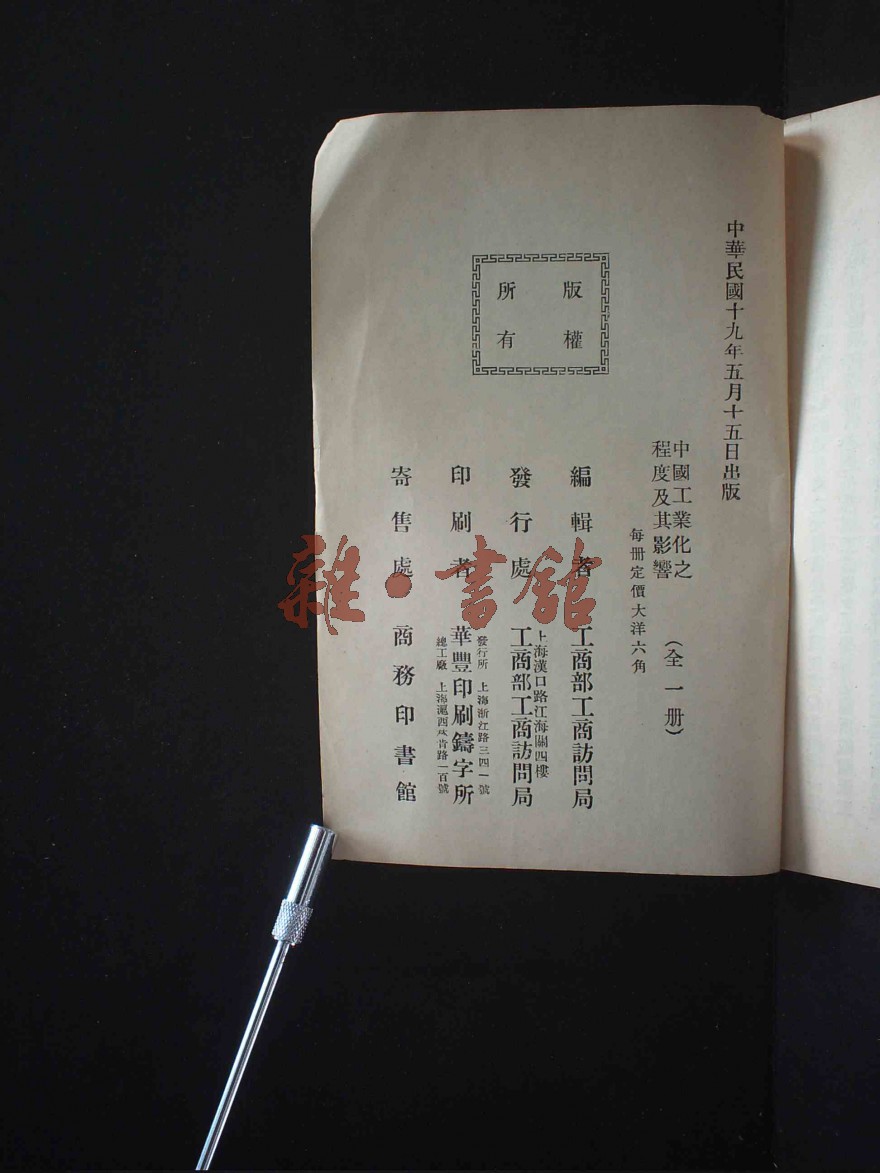 中華民國十九年五月十五日出版
中國工業化之
程度及其影響
(全一册)
每冊定價大洋六角
版權
所有
編輯者 工商部工商訪問局
上海漢口路江海關四樓
發行處 工商部工商訪問局
發行所 上海浙江路三四一號
印刷者 華豐印刷鑄字所
總工廠 上海滬西 肯路一百號
寄售處 商務印書館
雜·書館